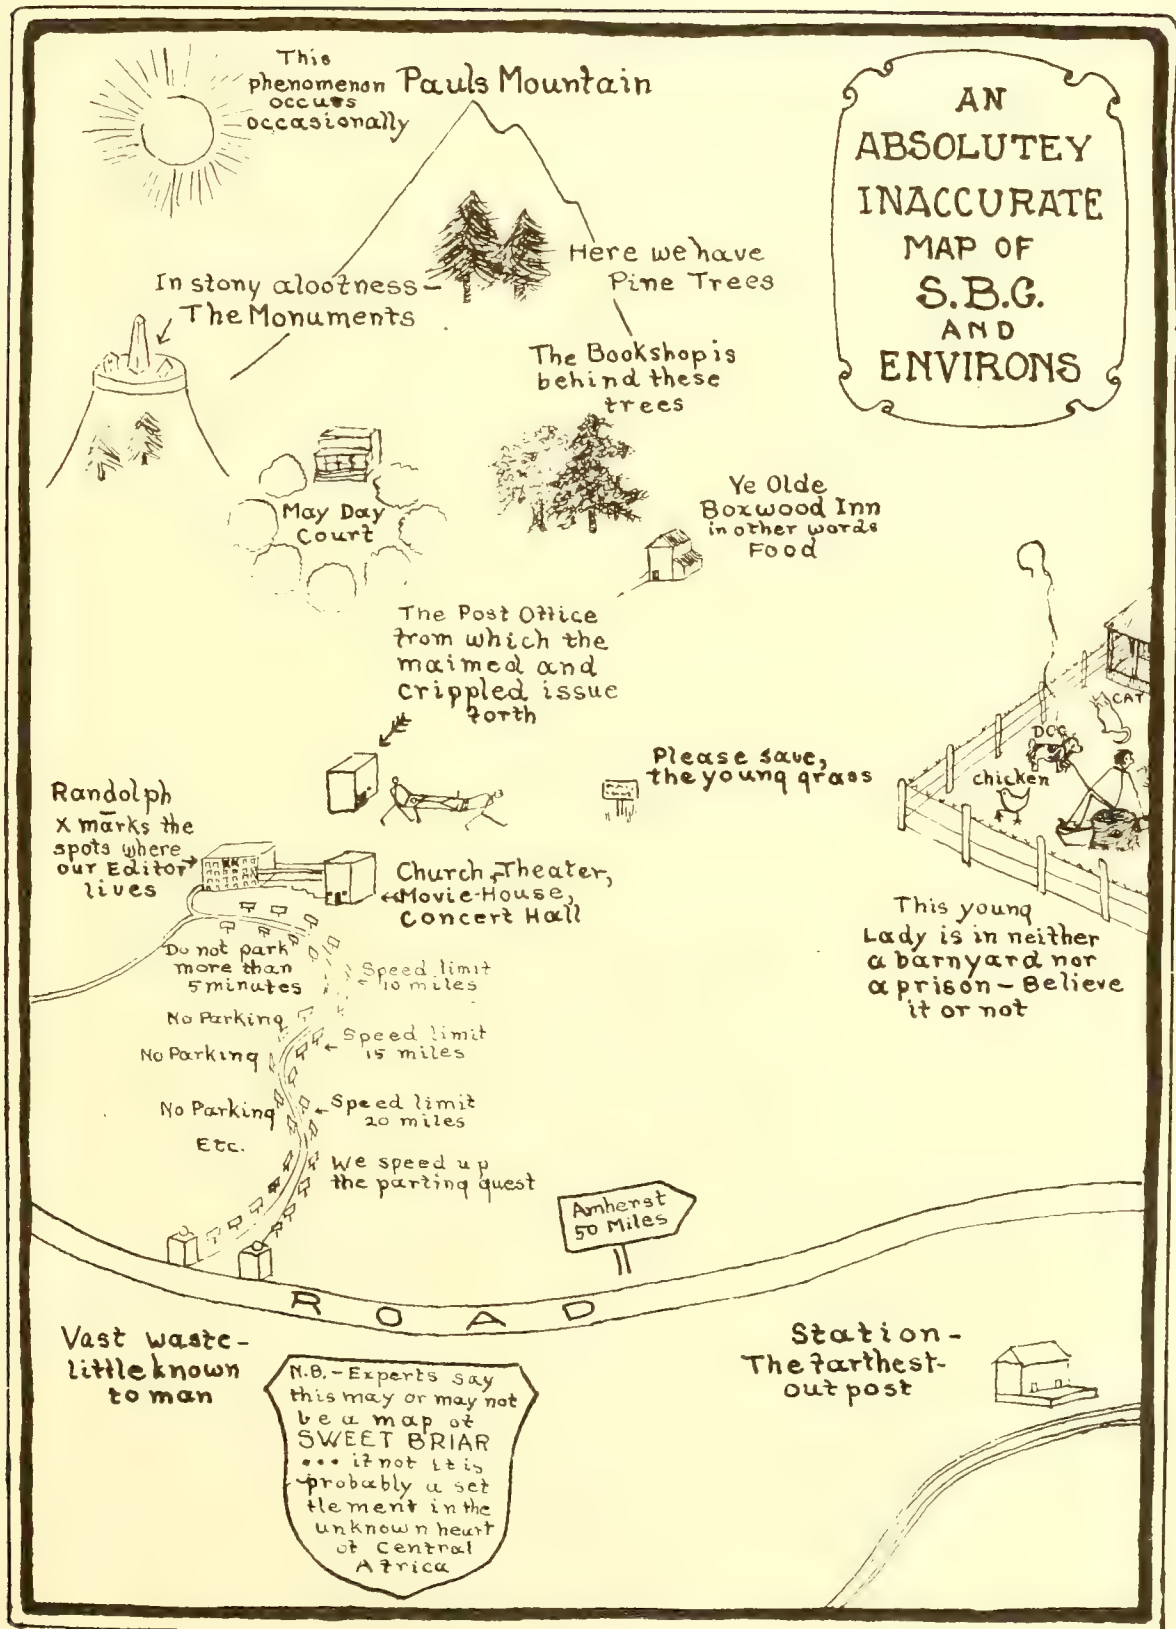 This
phenomenon
occurs
occasionally
Pauls Mountain
AN
ABSOLUTEY
INACCURATE
MAP OF
S.B.C.
AND
ENVIRONS
Here we have
Pine Trees
In stony aloofness–
The Monuments
The Bookshop is
behind these
trees
May Day
Court
Ye Olde
Boxwood Inn
in other words
Food
The Post Office
from which the
maimed and
crippled issue
forth
CAT
DOG
chicken
Please save,
the young grass
Randolph
X marks the
spots where
our Editor
lives
Church, Theater,
Movie-House,
Concert Hall
This young
Lady is in neither
a barnyard nor
a prison – Believe
it or not
Do not park
more than
5 minutes
Speed limit
10 miles
No Parking
Speed limit
15 miles
No Parking
No Parking
Speed limit
20 miles
Etc.
We speed up
the parting guest
Amherst
50 Miles
ROAD
Vast waste–
little known
to man
N.B. – Experts say
this may or may not
be a map of
SWEET BRIAR
... if not it is
probably a set
tlement in the
unknown heart
of Central
Africa
Station –
The farthest-
out post